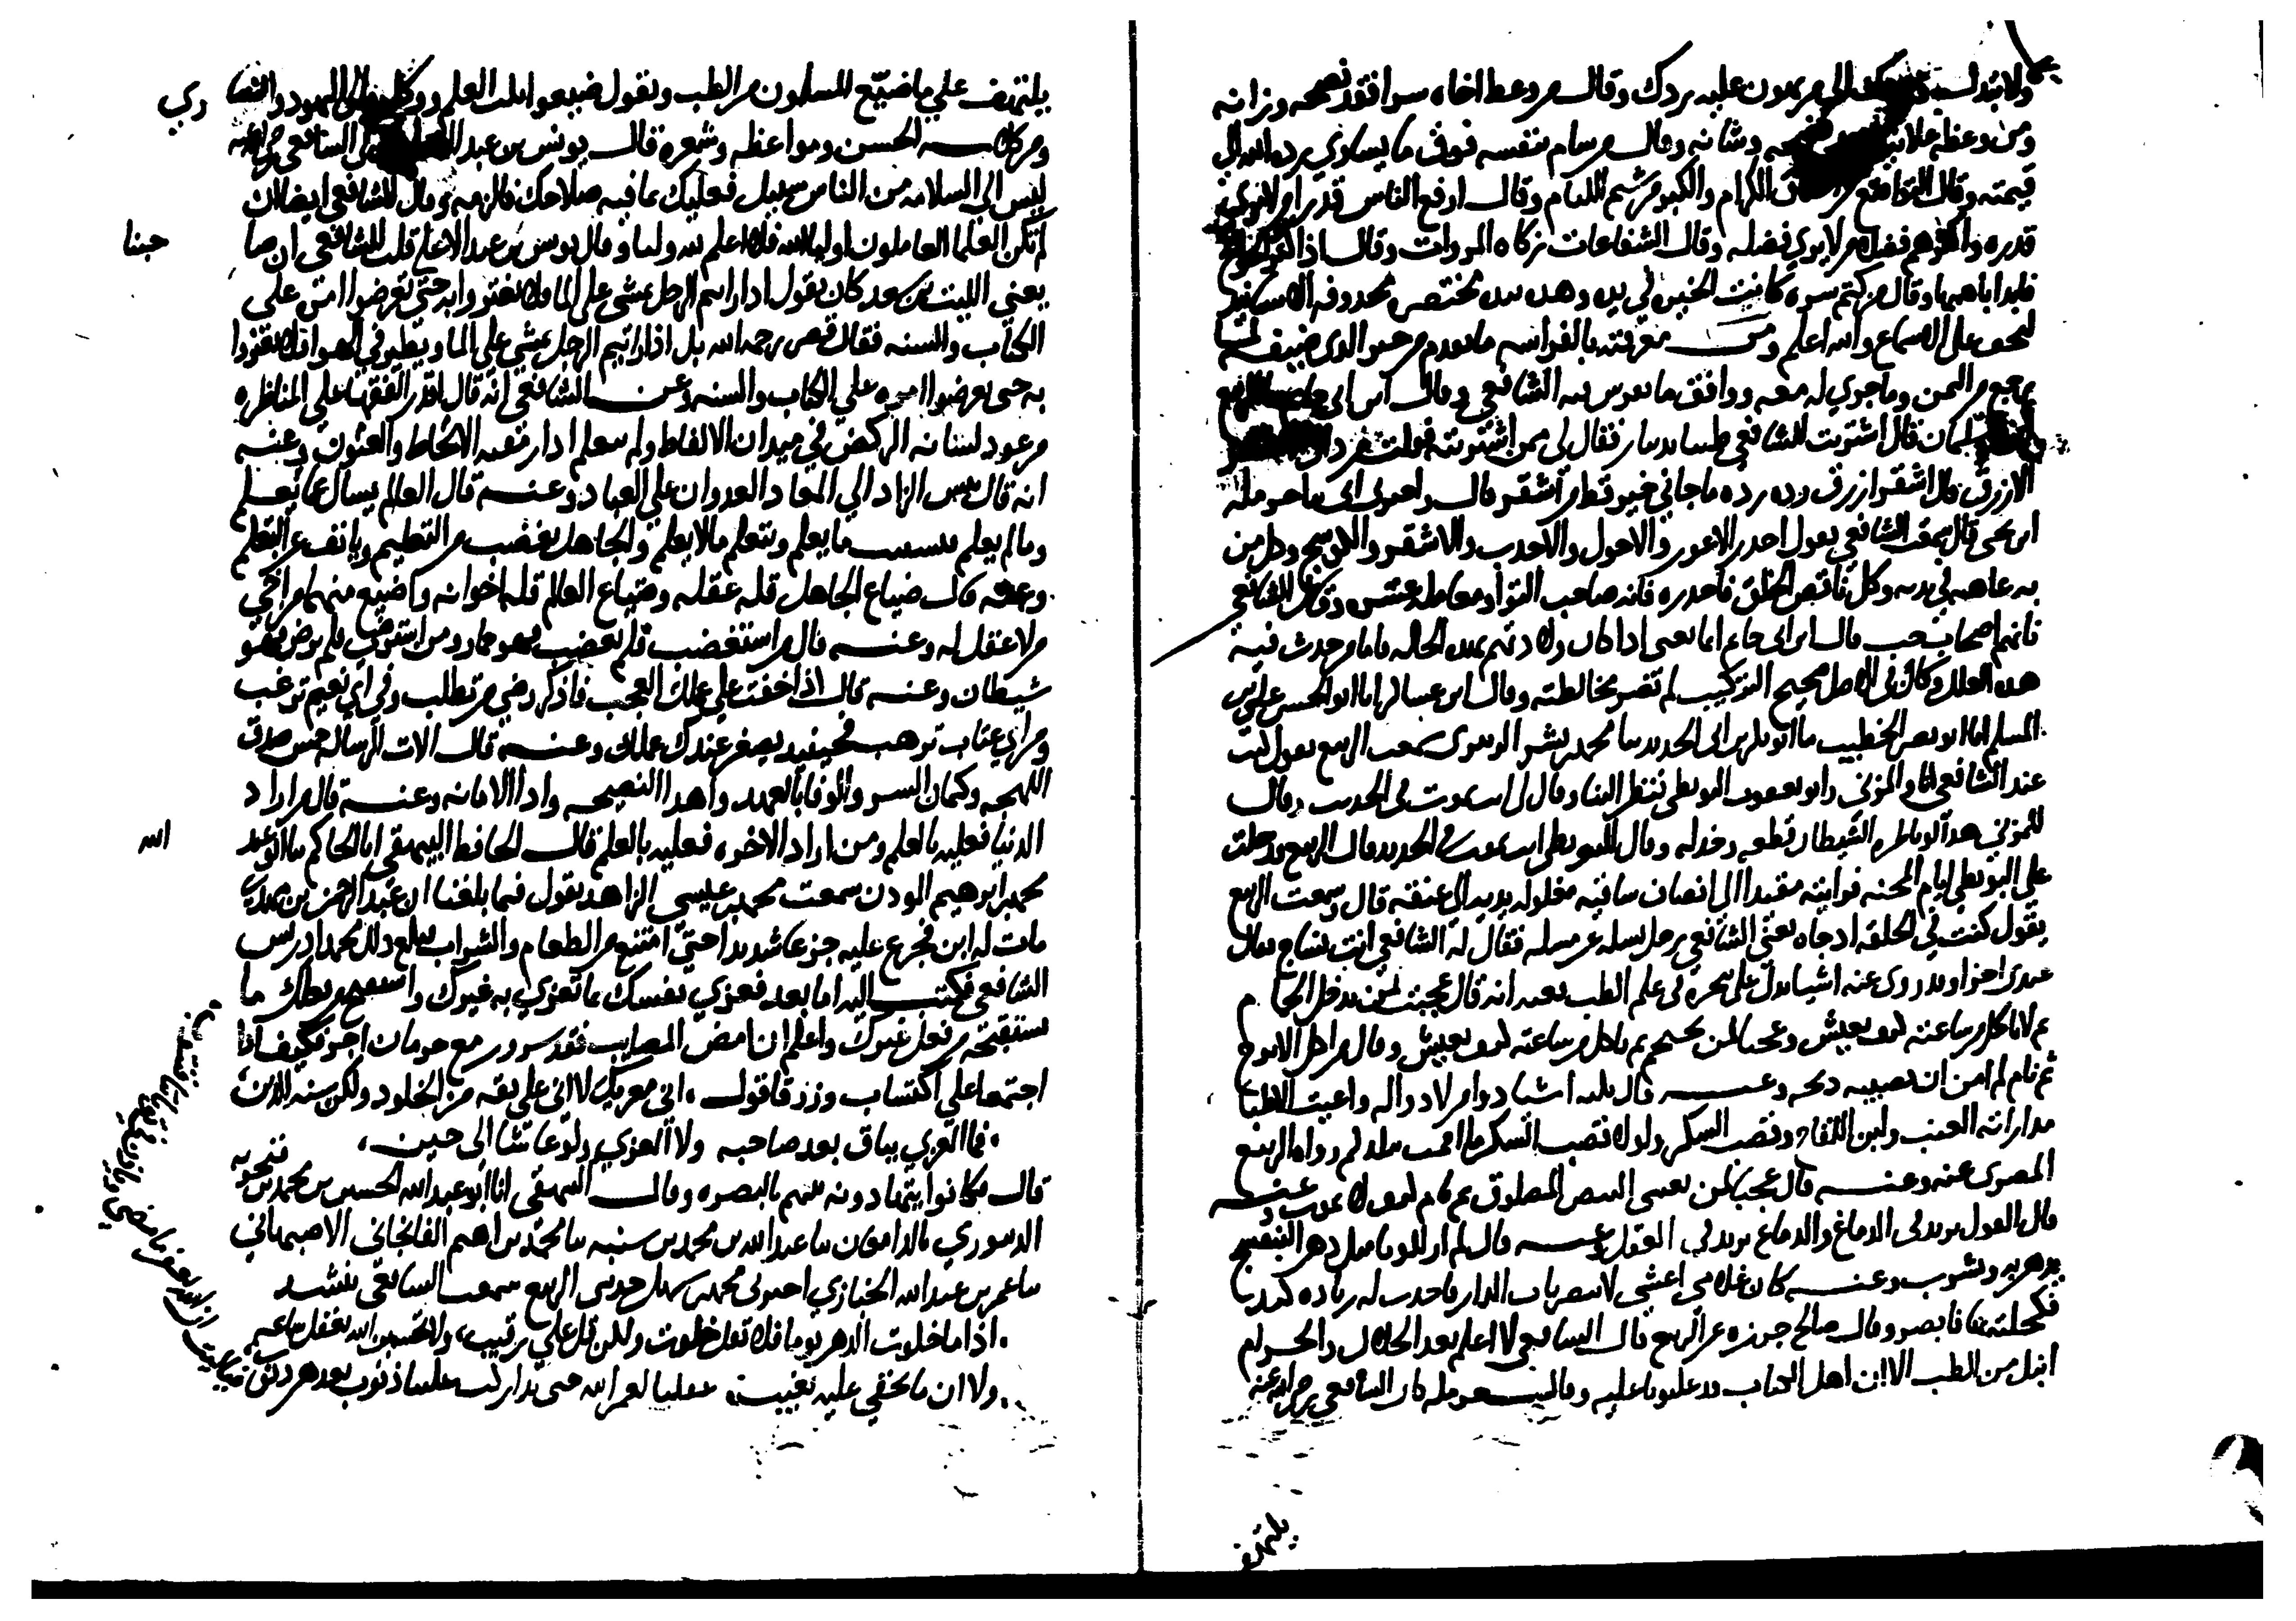 ولا تبذل وجهك الى من يهون عليه ردك وقال من وعظ اخاه سرا فقد نصحه وزانه
ومن وعظه علانية وشانه وقال من سام بنفسه فوق ما يساوي رده الله الى
قيمته وقال التواضع من اخلاق الكرام والكبر من شيم اللئام وقال ارفع الناس قدرا من لا يرى
قدره واكثرهم فضلا من لا يرى فضله وقال الشفاعات زكاه المروات وقال اذا
فابدا باهمها وقال من كتم سره كانت الخيره في يده وهذه مختصر محذوفه الاسانيد
على السماع والله اعلم ومن معرفته بالفراسه ما تقدم من خبر الذي ضيفه لما
رجع من اليمن وما جرى له معه ووافق ما تفرس فيه الشافعي وقال ابن ابي حاتم الربيع
بن سليمان قال اشتريت للشافعي طيبا بدينار فقال لي ممن اشتريته فقلت من ذاك
الازرق قال اشقر ازرق رده رده ما جاني خير قط من اشقر قال واخبرني ابي حرمله
ابن يحيى قال سمعت الشافعي يقول احذر الاعور والاحول والاحدب والاشقر والكوسج وكل من
به عاهه في بدنه وكل ناقص الخلق فاحذره فانه صاحب التواء ومعامله عسره وقال الشافعي
فانهم اصحاب خب قال ابن ابي حاتم انما يعني اذا كان ولادتهم بهذه الحاله فاما من حدث فيه
هذه العلل وكان في الاصل صحيح التركيب لم تضر مخالطته وقال ابن عساكر انا ابو الحسن علي بن
المسلم انا ابو نصر الخطيب انا ابو بكر بن ابي الحديد محمد بن بشر سمعت الربيع يقول كنت
عند الشافعي انا والمزني وابو يعقوب البويطي فنظر الينا وقال لي انت تموت في الحديث وقال
للمزني هذا لو ناظره الشيطان قطعه وجدله وقال للبويطي انت تموت في الحديد قال الربيع فدخلت
على البويطي ايام المحنه فرايته مقيدا الى انصاف ساقيه مغلوله يديه الى عنقه قال وسمعت الربيع
يقول كنت في الحلقه اذ جاه يعني الشافعي رجل يسله عن مسله فقال له الشافعي انت نساج فقال
عندي اجرا وقد روي عنه اشيا تدل على تبحره في علم الطب فعنه انه قال عجبت لمن يدخل الحمام
ثم لا ياكل من ساعته كيف يعيش وعجبا لمن يحتجم ثم ياكل من ساعته كيف يعيش وقال من اكل الاترج
ثم نام لم امن ان تصيبه ذبحه وعنه قال ثلاثه اشيا دوا من لا دوا له واعيت الاطبا
مداراته العنب ولبن اللقاح وقصب السكر ولولا قصب السكر ما اقمت ببلدكم رواه الربيع
المصري عنه وعنه قال عجبا لمن تعشى البيض المصلوق ثم نام كيف لا يموت وعنه
قال الفول يزيد في الدماغ والدماغ يزيد في العقل وعنه قال لم ار للوبا مثل دهن البنفسج
يدهن به ويشرب وعنه كان غلامي اعشى لا يبصر باب الدار فاخذت له زياده كبد
فكحلته بها فابصر وقال صالح جزره عن الربيع قال الشافعي لا اعلم بعد الحلال والحرام
انبل من الطب الا ان اهل الكتاب قد غلبونا عليه وقال حرمله كان الشافعي رحمه الله
يتلهف
يتلهف على ما ضيع المسلمون من الطب ويقول ضيعوا ثلث العلم ووكلوه الى اليهود والنصا
رى
ومن كلامه الحسن ومواعظه وشعره قال يونس بن عبد الاعلى قال لي الشافعي رحمه الله
ليس الى السلامه من الناس سبيل فعليك بما فيه صلاحك فالزمه وقال الشافعي ايضا ان
لم تكن العلما العاملون اوليا لله فلا اعلم لله وليا وقال يونس بن عبد الاعلى قلت للشافعي ان صا
حبنا
يعني الليث بن سعد كان يقول اذا رايتم الرجل يمشي على الما فلا تغتروا به حتى تعرضوا امره على
الكتاب والسنه فقال قصر رحمه الله بل اذا رايتم الرجل يمشي على الما ويطير في الهوا فلا تغتروا
به حتى تعرضوا امره على الكتاب والسنه وعن الشافعي انه قال اقدر الفقها على المناظره
من عود لسانه الركض في ميدان الالفاظ ولم يتلعثم اذا رمقته الالحاظ والعيون وعنه
انه قال بئس الزاد الى المعاد العدوان على العباد وعنه قال العالم يسال عما يعلم
وما لم يعلم فيثبت ما يعلم ويتعلم ما لا يعلم والجاهل يغضب من التعليم ويانف من التعلم
وعنه قال ضياع الجاهل قله عقله وضياع العالم قله اخوانه واضيع منهما من اخى
من لا عقل له وعنه قال من استغضب فلم يغضب فهو حمار ومن استرضي فلم يرض فهو
شيطان وعنه قال اذا خفت على عملك العجب فاذكر رضى من تطلب وفي اي نعيم ترغب
ومن اي عقاب ترهب فحينئذ يصغر عندك عملك وعنه قال الات الرياسه خمس صدق
اللهجه وكتمان السر والوفا بالعهد وابتدا النصيحه وادا الامانه وعنه قال من اراد
الدنيا فعليه بالعلم ومن اراد الاخره فعليه بالعلم قال الحافظ البيهقي انا الحاكم انا ابو عبد
الله
محمد بن ابرهيم الموذن سمعت محمد بن عيسى الزاهد يقول فيما بلغنا ان عبد الرحمن بن مهدي
مات له ابن فجزع عليه جزعا شديدا حتى امتنع من الطعام والشراب فبلغ ذلك محمد بن ادريس
الشافعي فكتب اليه اما بعد فعزي نفسك بما تعزي به غيرك واستقبح من فعلك ما
تستقبحه من فعل غيرك واعلم ان امض المصايب فقد سرور مع حرمان اجر فكيف اذا
اجتمعا على اكتساب وزر فاقول اني معزيك لا اني على ثقه من الخلود ولكن سنه الدين
فما المعزي بباق بعد صاحبه ولا المعزى ولو عاشا الى حين
قال فكانوا يتهادونه بينهم بالبصره وقال البيهقي انا ابو عبد الله الحسين بن محمد بن فنجويه
الدينوري بالدامغان عبد الله بن محمد بن شنبه محمد بن ابراهيم الاصبهاني
عمر بن عبد الله الخبازي اخبرني محمد بن سهل حدثني الربيع سمعت الشافعي ينشد
اذا ما خلوت الدهر يوما فلا تقل خلوت ولكن قل علي رقيب ولا تحسبن الله يغفل ساعه
ولا ان ما يخفى عليه يغيب غفلنا لعمر الله حتى تداركت علينا ذنوب بعدهن ذنوب
فياليت ان الله يغفر ما مضى وياذن في توباتنا فنتوب